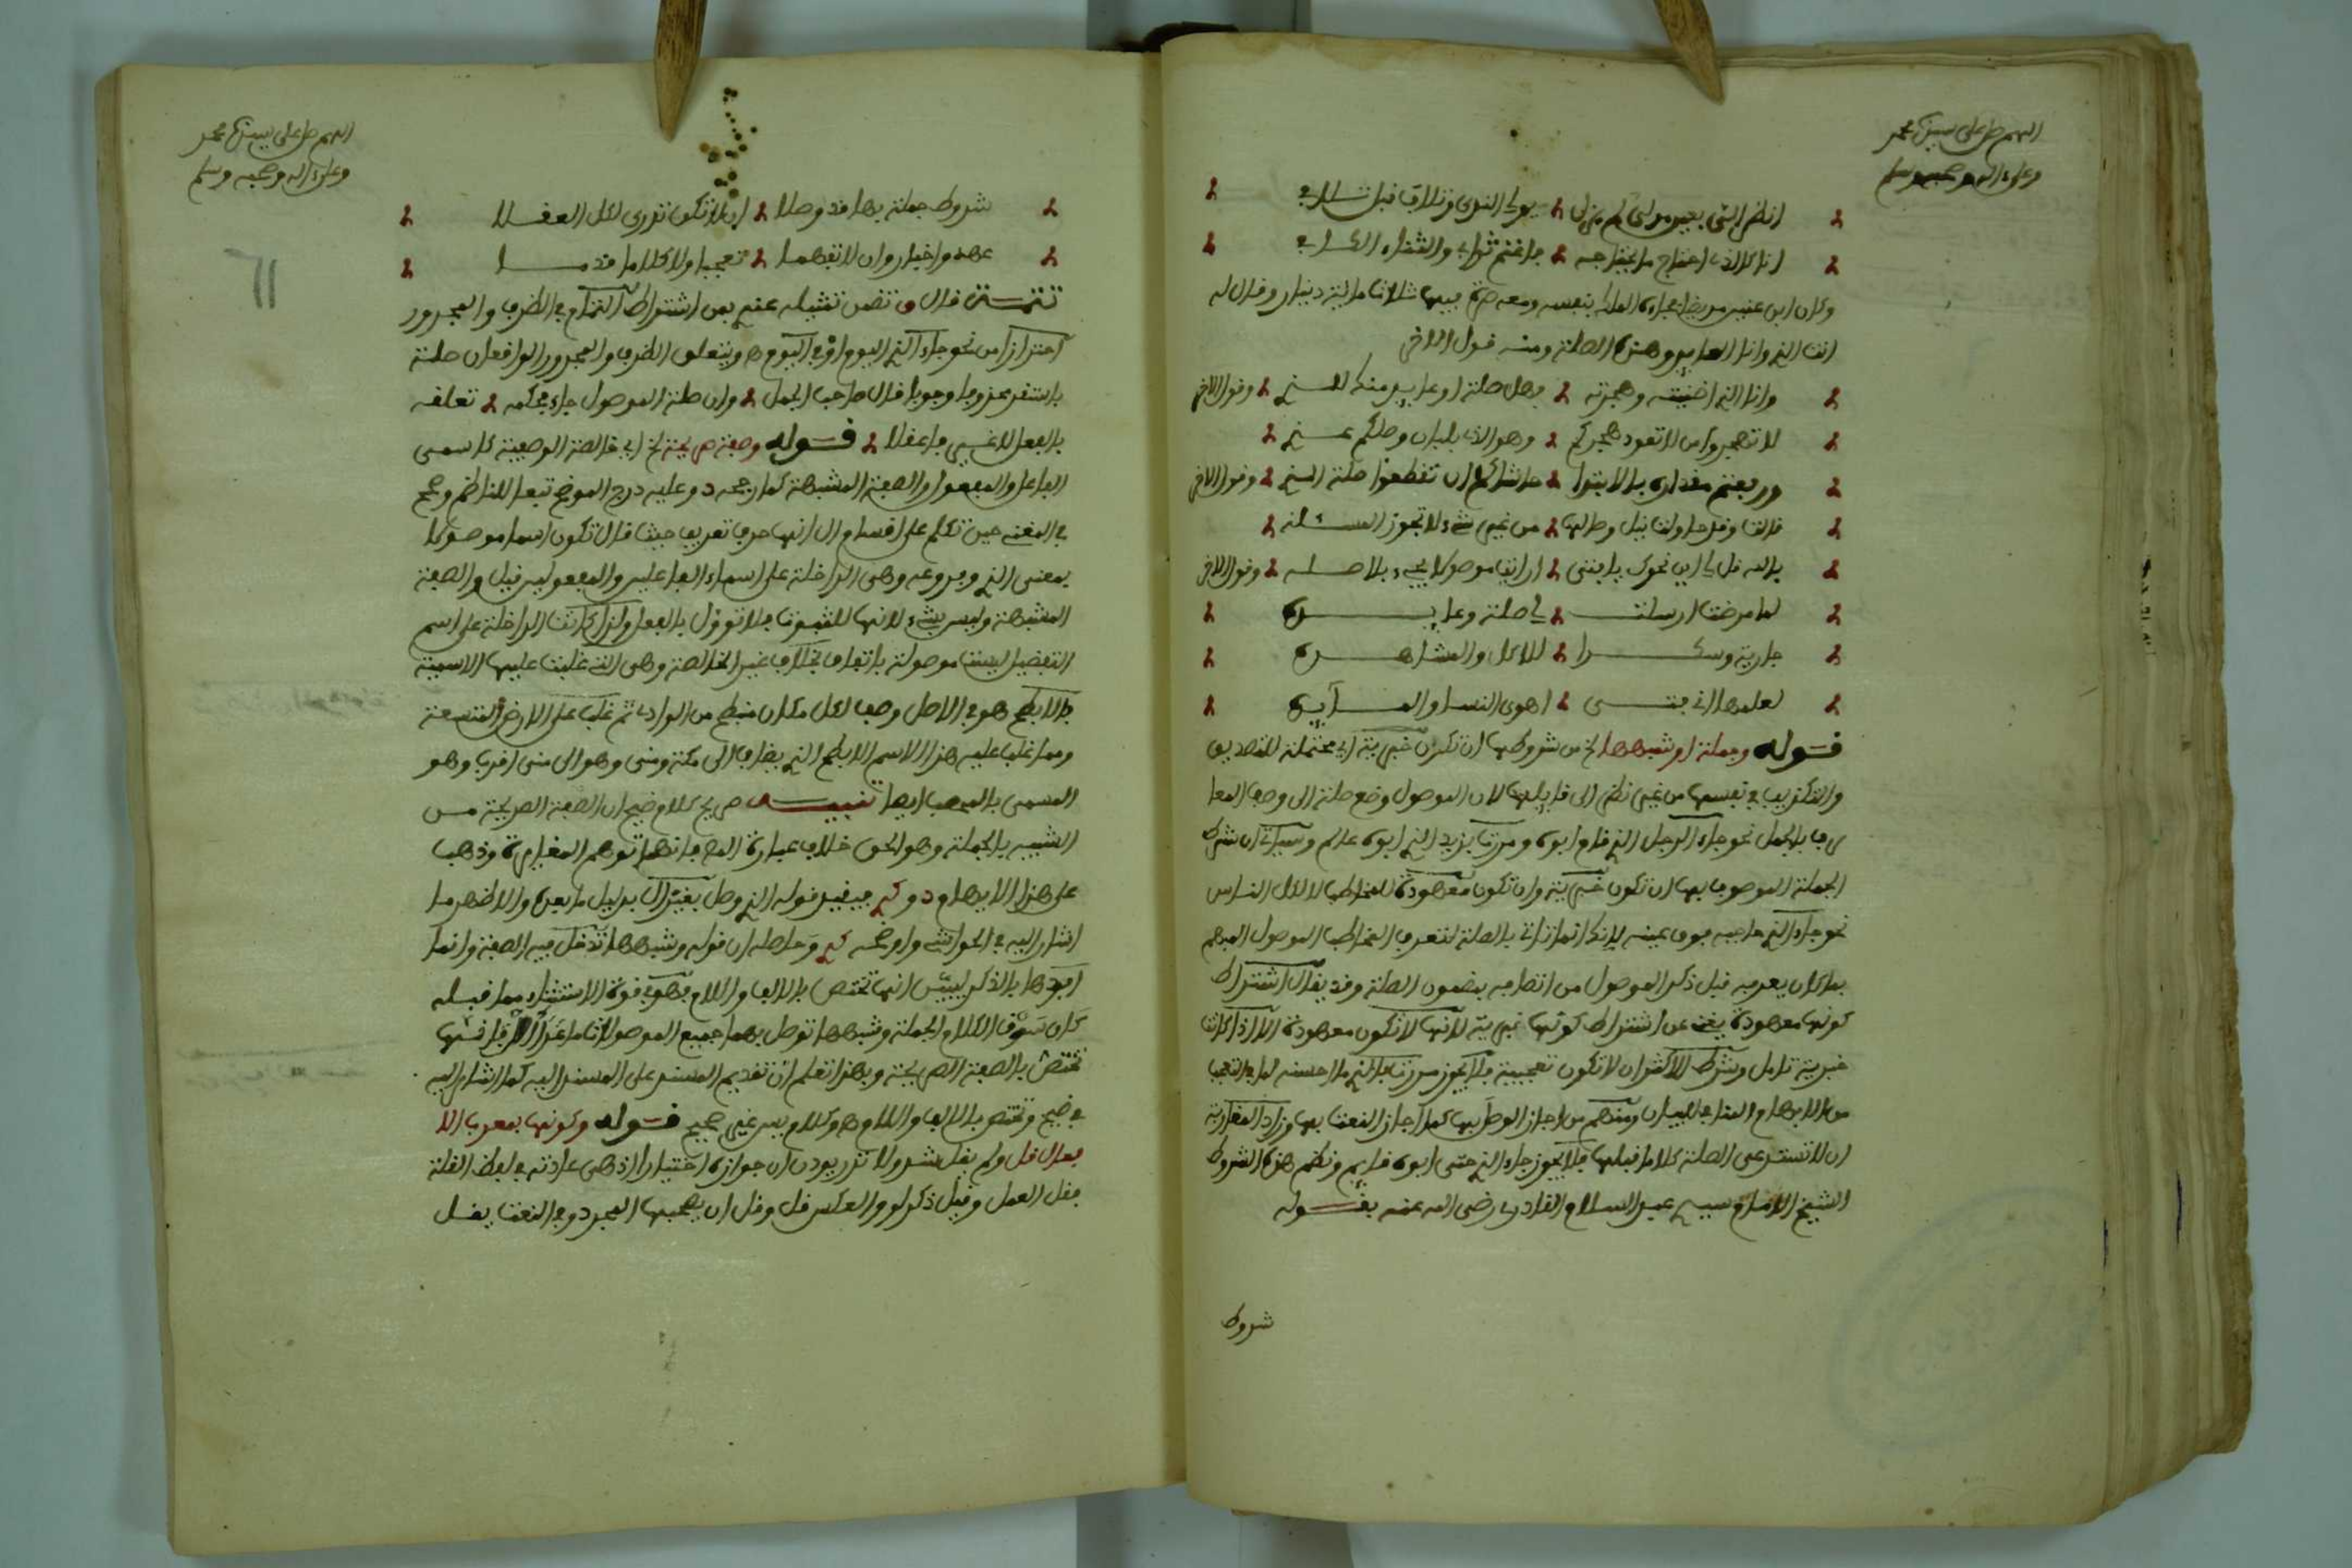 اللهم صل على سيدنا محمد
وعلى ءاله وصحبه وسلم
انظر الي بعين مولى لم يزل يولي الندى وتلاف قبل تلافي
انا كالذي احتاج ما يحتاجه فاغنم ثوابي والثناء الكافي
وكان ابن عنين مريضا فجاءه الملك بنفسه ومعه صرة فيها ثلاثمائة دينار وقال له
انت الذي وانا العايد وهذه الصلة ومنه قول الاخر
وانا الذي اضنيته وهجرته فهل صلة او عايد منك للذي وقول الاخر
لا تهجروا من لا تعود هجركم وهو الذي بلبان وصلكم غذي
ورفعتم مقداره بالابتدا حاشاكم ان تقطعوا صلة الذي وقول الاخر
قالت وقد حاولت نيل وصالها من غير شيء لا تجوز المسئلة
بالله قل لي اين نحوك يا فتى ارايت موصولا يجيء بلا صلة وقول الاخر
لما مرضت ارسلت لي صلة وعايده
جارية وسكرا للاكل والمشاهده
لعلمها اني فتى اهوى النسا والمايده
قوله وجملة او شبهها الخ من شروطها ان تكون خبرية اي محتملة للتصديق
والتكذيب في نفسها من غير نظر الى قايلها لان الموصول وضع صلة الى وصف المعا
رف بالجمل نحو جاء الرجل الذي قام ابوه ومررت بزيد الذي ابوه عالم وسياتي ان شرط
الجملة الموصوف بها ان تكون خبرية وان تكون معهودة للمخاطب لا لكل الناس
نحو جاء الذي حاجبه فوق عينه لانك انما تاتي بالصلة لتعرف المخاطب الموصول المبهم
بما كان يعرفه قبل ذكر الموصول من اتصافه بمضمون الصلة وقد يقال اشتراط
كونها معهودة يغني عن اشتراط كونها خبرية لانها لا تكون معهودة الا اذا كانت
خبرية تامل وشرط الاكثر ان لا تكون تعجبية فلا يجوز مررت بالذي ما احسنه لما في التعجب
من الابهام المنافي للبيان ومنهم من اجاز الوصل بها كما اجاز النعت بها وزاد المغاربة
ان لا تستدعي الصلة كلاما قبلها فلا يجوز جاء الذي حتى ابوه قايم ونظم هذه الشروط
الشيخ الامام سيدي عبد السلام القادري رضي الله عنه بقوله
شروط
اللهم صل على سيدنا محمد
وعلى ءاله وصحبه وسلم
شروط جملة بها قد وصلا ان لا تكون تدرى لكل العقلا
عهد واخبار وان لا تفهما تعجبا ولا كلاما قدما
تتمة قال تضمن تمثيله عندي من اشتراط التمام في الظرف والمجرور
احترازا من نحو جاء الذي اليوم او في اليوم ويتعلق الظرف والمجرور الواقعان صلة
باستقر محذوفا وجوبا قال صاحب الجمل وان صلة الموصول جاء محكمه تعلقه
بالفعل لا غير فاعقلا قوله وصفة صريحة الخ اي خالصة الوصفية كاسمي
الفاعل والمفعول والصفة المشبهة كما رجحه د وعليه درج الموضح تبعا للناظم وصحح
في المغني حين تكلم على اقسام ال انها حرف تعريف حيث قال تكون اسما موصولا
بمعنى الذي وفروعه وهي الداخلة على اسماء الفاعلين والمفعولين قيل والصفة
المشبهة وليس بشيء لانها للثبوت فلا توول بالفعل ولذلك كانت الداخلة على اسم
التفضيل ليست موصولة باتفاق بخلاف غير الخالصة وهي التي غلبت عليها الاسمية
كالابطح هو في الاصل وصف لكل مكان منبطح من الوادي ثم غلب على الارض المتسعة
ومما غلب عليه هذا الاسم الابطح الذي يضاف الى مكة ومنى وهو الى منى اقرب وهو
المسمى بالمحصب ايضا تنبيه صريح كلام ضيح ان الصفة الصريحة من
الشبيه بالجملة وهو الحق خلاف عبارة فانها توهم المغايرة وذهب
على هذا الابهام د و فيقيد قوله الذي وصل بغير ال بدليل ما بعده والاظهر ما
اشار اليه في الحواشي واوضحه وحاصله ان قوله وشبهها تدخل فيه الصفة وانما
افردها بالذكر ليبين انها تختص بالالف واللام فهو في قوة الاستثناء مما قبله
كان سوق الكلام الجملة وشبهها توصل بهما جميع الموصولات ما عدا ال فانها
تختص بالصفة الصريحة وبهذا تعلم ان تقديم المسند على المسند اليه كما اشار اليه
في ضيح وتختص بالالف واللام وكلام غير صحيح قوله وكونها بمعرب الا
فعال قل ولم يقل شذ ولا نزر يوذن ان جوازه اختيارا اذ هي عادته في لفظ القلة
فقل العمل وقيل ذكر لو والعكس قل وقل ان يصحبها المجرد وفي النعت يقل